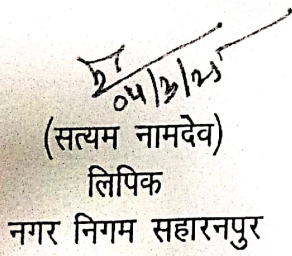 04/3/25
(सत्यम नामदेव)
लिपिक
नगर निगम सहारनपुर